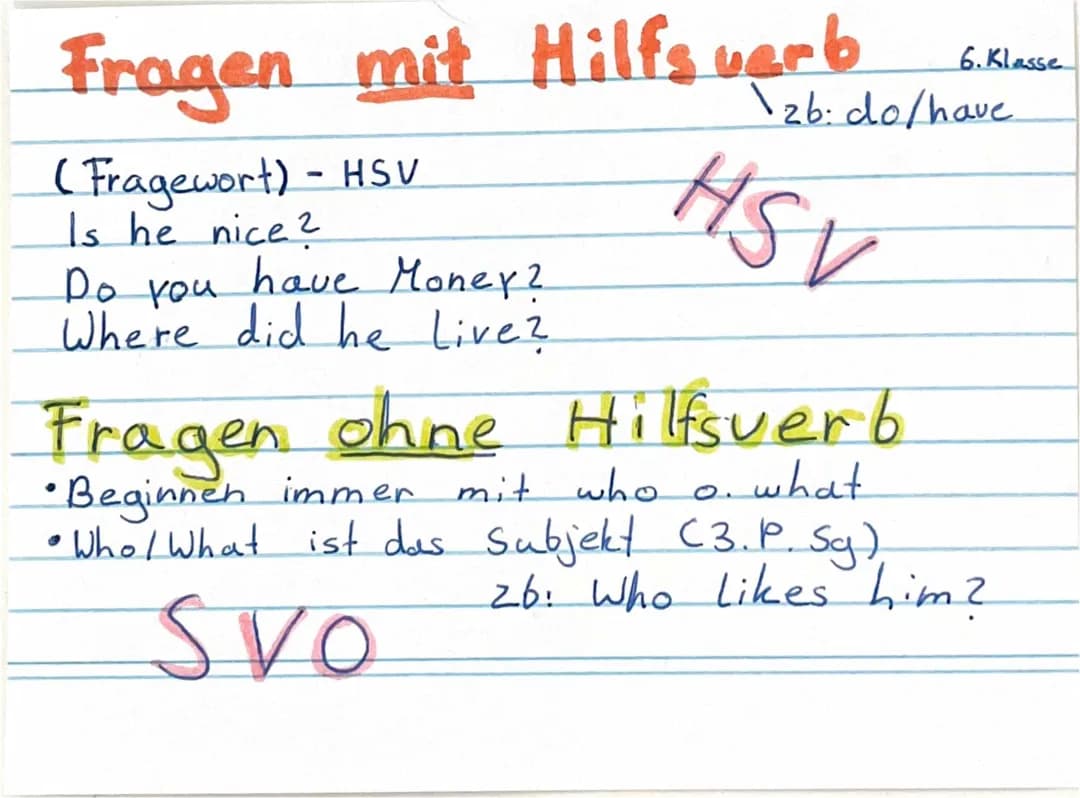 Fragen mit Hilfsverb
6. Klasse
zb: do/have
(Fragewort) - HSV
HSV
Is he nice?
Do you have Money?
Where did he live?
Fragen ohne Hilfsverb
• Beginnen immer mit who o. what
• Who/What ist das Subjekt (3. P. Sg)
zb: Who likes him?
SVO